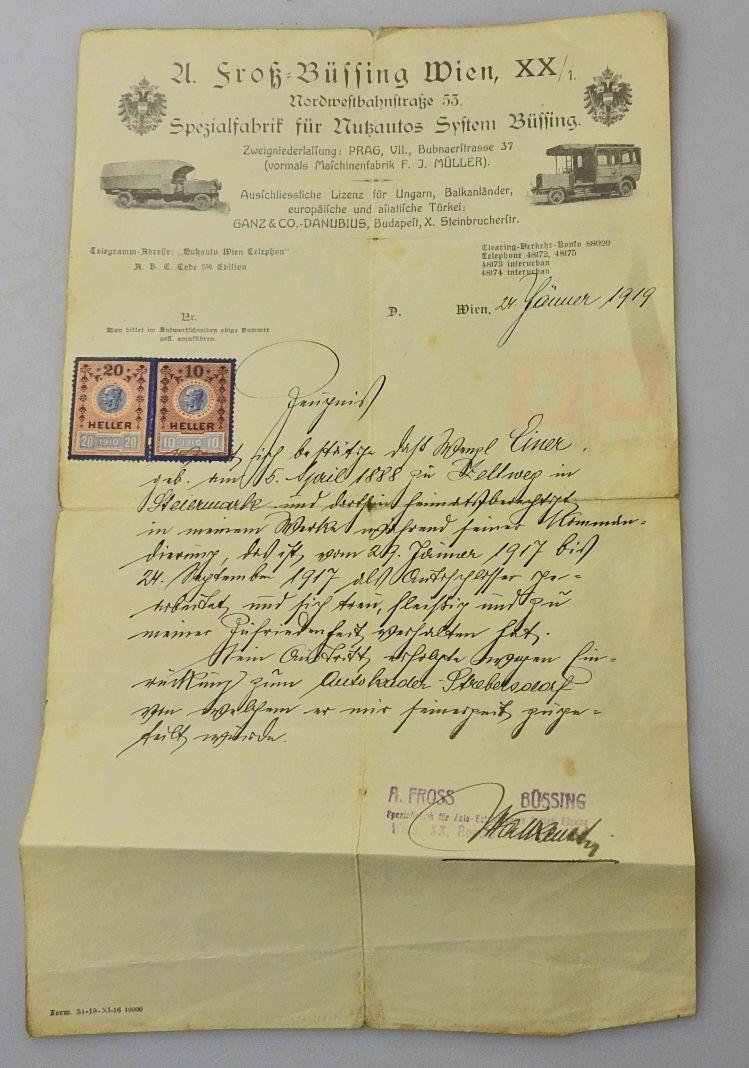 A. Froß-Büssing Wien, XX/1.
Nordwestbahnstraße 53.
Spezialfabrik für Nutzautos System Büssing.
Zweigniederlassung: PRAG, VII., Bubnaerstrasse 37
(vormals Maschinenfabrik F. J. MÜLLER).
Ausschliessliche Lizenz für Ungarn, Balkanländer,
europäische und asiatische Türkei:
GANZ & CO.-DANUBIUS, Budapest, X. Steinbrucherstr.
Telegramm-Adresse: „Nutzauto Wien Telephon“
A. B. C. Code 5th Edition
Clearing-Verkehr-Konto 88020
Telephone 48172, 48175
48173 interurban
48174 interurban
Nr.
Man bittet im Antwortschreiben obige Nummer
gefl. anzuführen.
D.
Wien, 24. Jänner 1919
20 HELLER 20 1910 20
10 HELLER 10 1910 10
Zeugnis
ich bestätige daß Wenzl Einer,
geb. am 5. April 1888 zu in
Steiermark und dorthin heimatsberechtigt
in meinem Werke während seiner Komman-
dierung, das ist vom 29. Jänner 1917 bis
24. September 1917 als Autoschlosser ge-
arbeitet und sich treu, fleissig und zu
meiner Zufriedenheit verhalten hat.
Sein Austritt erfolgte wegen Ein-
rückung zum Autokader Strebersdorf
von welchem er mir seinerzeit zuge-
teilt wurde.
A. FROSS BÜSSING
Spezialfabrik für
Wien, XX,
Form. 51-19-XI-16 10000